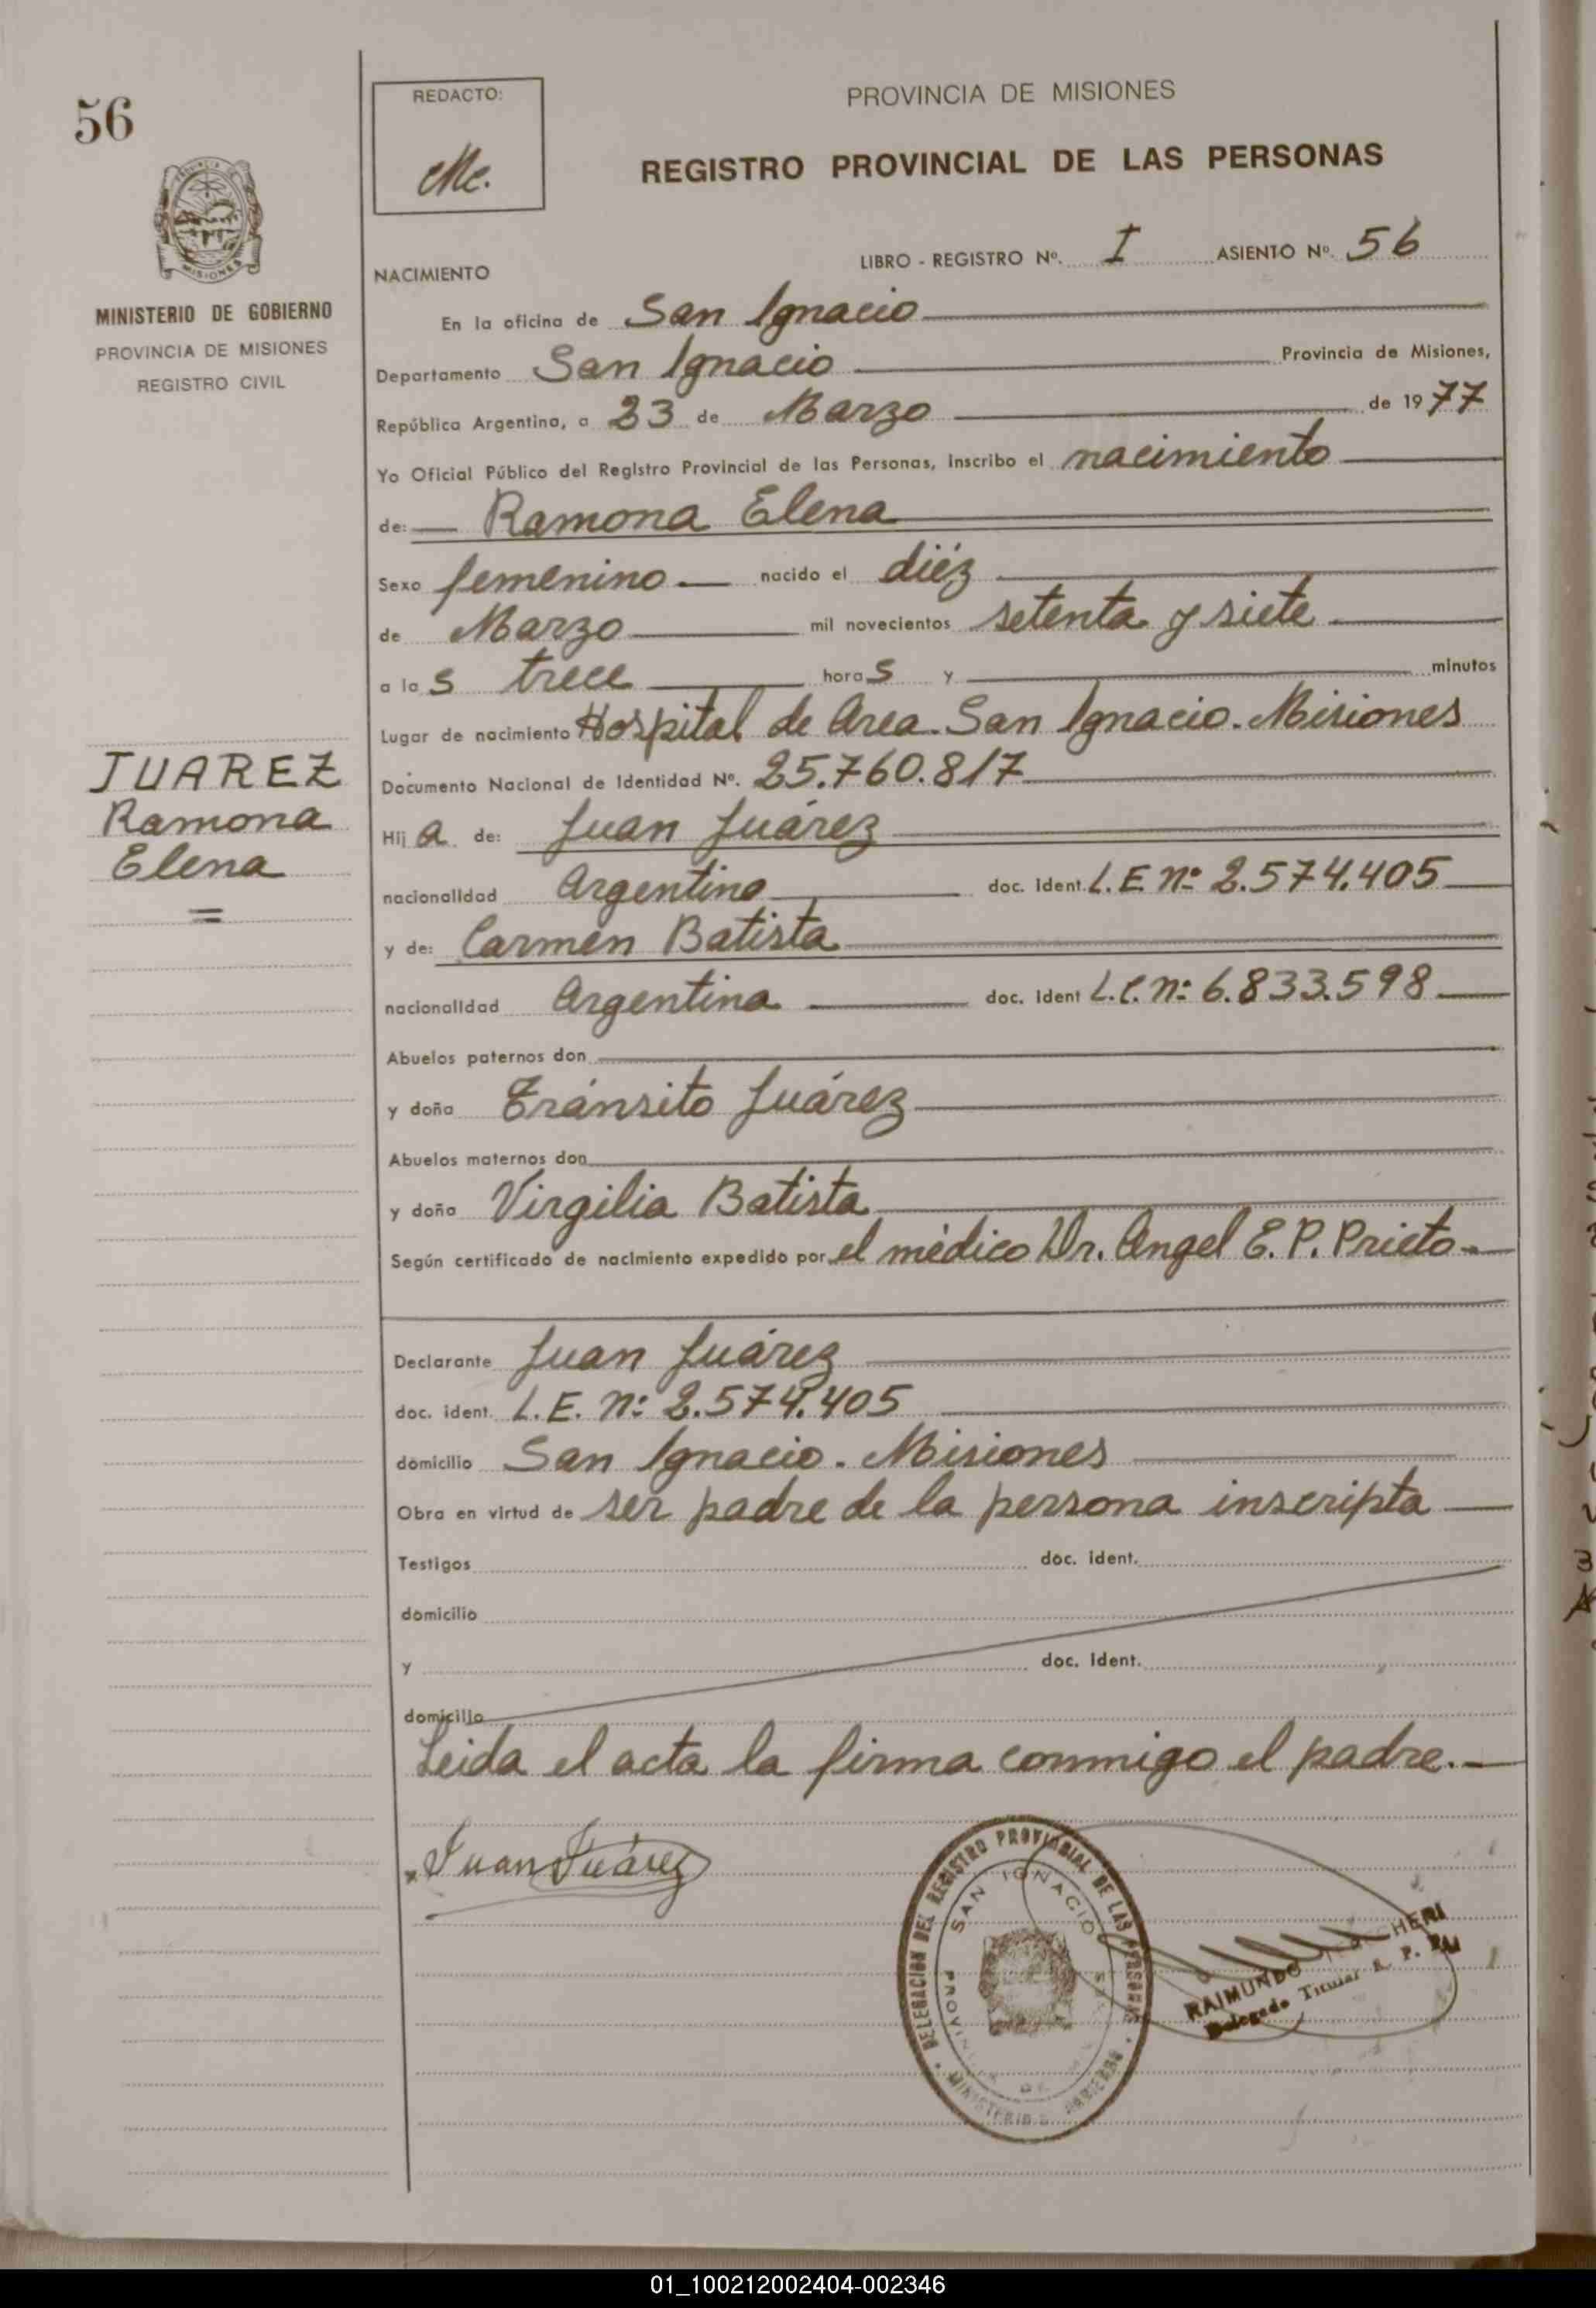 56
MISIONES
MINISTERIO DE GOBIERNO
PROVINCIA DE MISIONES
REGISTRO CIVIL
JUAREZ
Ramona
Elena
REDACTO:
PROVINCIA DE MISIONES
REGISTRO PROVINCIAL DE LAS PERSONAS
LIBRO - REGISTRO Nº. I ASIENTO Nº. 56
NACIMIENTO
En la oficina de San Ignacio
Departamento San Ignacio Provincia de Misiones,
República Argentina, a 23 de Marzo de 1977
Yo Oficial Público del Registro Provincial de las Personas, inscribo el nacimiento
de: Ramona Elena
Sexo femenino nacido el diéz
de Marzo mil novecientos setenta y siete
a las trece horas y minutos
Lugar de nacimiento Hospital de Area. San Ignacio. Misiones
Documento Nacional de Identidad Nº. 25.760.817
Hija de: Juan Juárez
nacionalidad Argentina doc. ident. L.E. Nº 2.574.405
y de: Carmen Batista
nacionalidad Argentina doc. ident L.C. Nº: 6.833.598
Abuelos paternos don
y doña Tránsito Juárez
Abuelos maternos don
y doña Virgilia Batista
Según certificado de nacimiento expedido por el médico Dr. Angel E. P. Prieto.
Declarante Juan Juárez
doc. ident. L.E. Nº: 2.574.405
domicilio San Ignacio. Misiones
Obra en virtud de ser padre de la persona inscripta
Testigos doc. ident.
domicilio
y doc. ident.
domicilio
Leida el acta la firma conmigo el padre.
Juan Juárez
DELEGACION DEL REGISTRO PROVINCIAL DE LAS PERSONAS
SAN IGNACIO
MINISTERIO GOBIERNO
RAIMUNDO
Delegado Titular R. P.
01_100212002404-002346